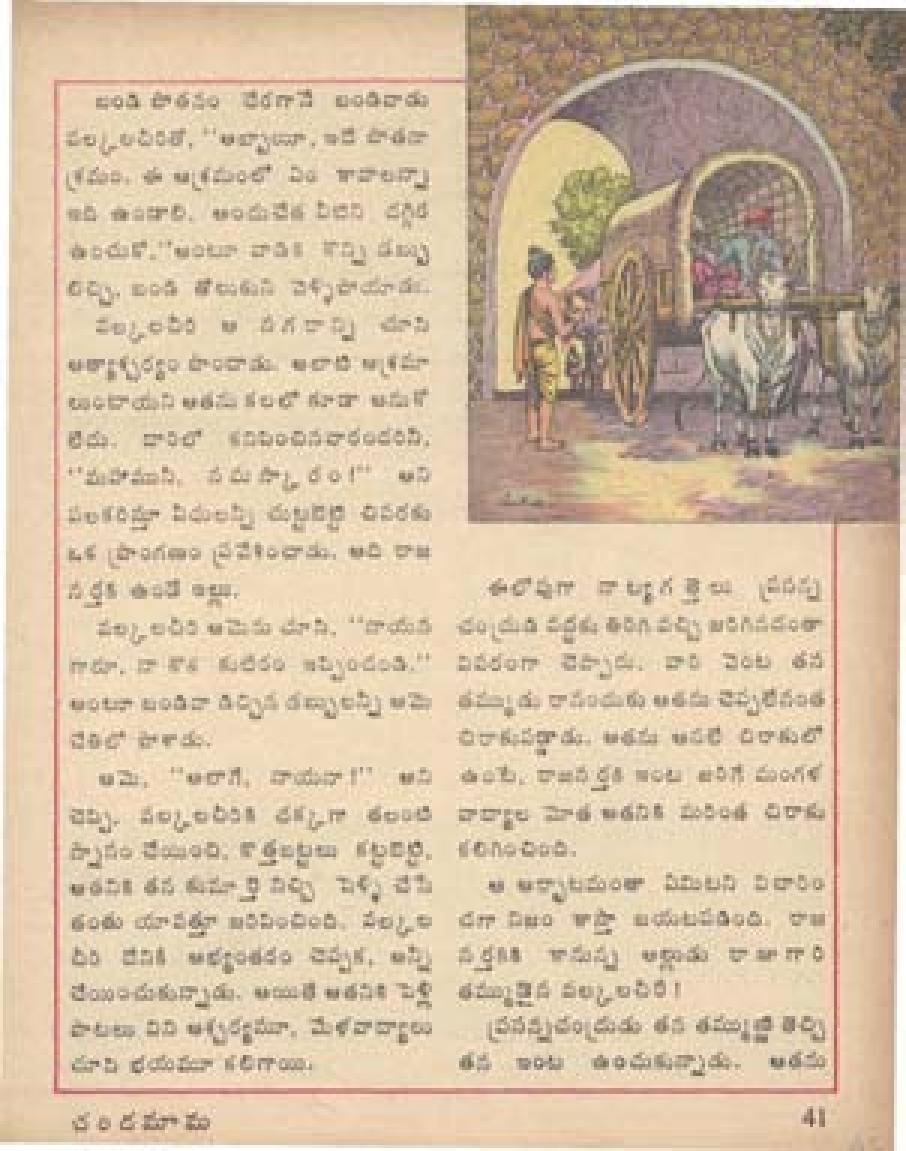 బండి పోతనం చేరగానే బండివాడు
వల్కలచీరితో, "అబ్బాయీ, ఇదే పోతనా
శ్రమం. ఈ ఆశ్రమంలో ఏం కావాలన్నా
ఇది ఉండాలి. అందుచేత వీటిని దగ్గిర
ఉంచుకో," అంటూ వాడికి కొన్ని డబ్బు
లిచ్చి, బండి తోలుకుని వెళ్ళిపోయాడు.
వల్కలచీరి ఆ నగరాన్ని చూసి
అత్యాశ్చర్యం పొందాడు. అలాటి ఆశ్రమా
లుంటాయని అతను కలలో కూడా అనుకో
లేదు. దారిలో కనిపించినవారందరినీ,
"మహామునీ, నమస్కారం!" అని
పలకరిస్తూ వీధులన్నీ చుట్టబెట్టి చివరకు
ఒక ప్రాంగణం ప్రవేశించాడు. అది రాజ
నర్తకి ఉండే ఇల్లు.
వల్కలచీరి ఆమెను చూసి, "నాయన
గారూ, నా కొక కుటీరం ఇప్పించండి,"
అంటూ బండివా డిచ్చిన డబ్బులన్నీ ఆమె
చేతిలో పోశాడు.
ఆమె, "అలాగే, నాయనా!" అని
చెప్పి, వల్కలచీరికి చక్కగా తలంటి
స్నానం చేయించి, కొత్తబట్టలు కట్టబెట్టి,
అతనికి తన కుమార్తె నిచ్చి పెళ్ళి చేసే
తంతు యావత్తూ జరిపించింది. వల్కల
చీరి దేనికీ అభ్యంతరం చెప్పక, అన్నీ
చేయించుకున్నాడు. అయితే అతనికి పెళ్లి
పాటలు విని ఆశ్చర్యమూ, మేళవాద్యాలు
చూసి భయమూ కలిగాయి.
ఈలోపుగా నాట్యగత్తెలు ప్రసన్న
చంద్రుడి వద్దకు తిరిగి వచ్చి జరిగినదంతా
వివరంగా చెప్పారు. వారి వెంట తన
తమ్ముడు రానందుకు అతను చెప్పలేనంత
చిరాకుపడ్డాడు. అతను అసలే చిరాకులో
ఉంటే, రాజనర్తకి ఇంట జరిగే మంగళ
వాద్యాల మోత అతనికి మరింత చిరాకు
కలిగించింది.
ఆ ఆర్భాటమంతా ఏమిటని విచారిం
చగా నిజం కాస్తా బయటపడింది. రాజ
నర్తకికి కానున్న అల్లుడు రాజుగారి
తమ్ముడైన వల్కలచీరి!
ప్రసన్నచంద్రుడు తన తమ్ముణ్ణి తెచ్చి
తన ఇంట ఉంచుకున్నాడు. అతను
చందమామ
41